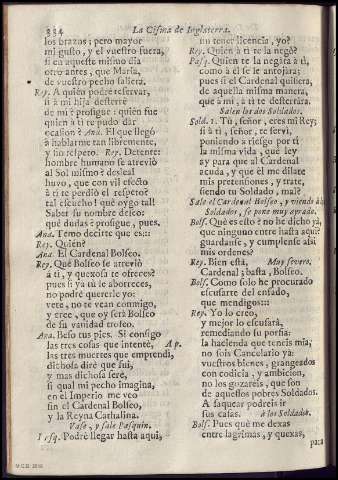 334
La Cisma de Inglaterra.
los brazos; pero mayor
mi gusto, y el vuestro fuera,
si en aqueste mismo dia
otro antes, que Maria,
de vuestro pecho saliera.
Rey. A quièn podrè reservar,
si à mi hija desterrè
de mi? prosigue: quièn fue
quien à ti te pudo dàr
ocasion? Ana. El que llegò
à hablarme tan libremente,
y sin respero. Rey. Detente:
hombre humano se atreviò
al Sol mismo? desleal
huvo, que con vil efecto
à ti te perdiò el respeto?
tal escucho! què oygo tal!
Saber su nombre deseo:
què dudas? prosigue, pues.
Ana. Temo decirte que es:::
Rey. Quièn?
Ana. El Cardenal Bolseo.
Rey. Què Bolseo le atreviò
à ti, y quexosa te ofreces?
pues si ya tù le aborreces,
no podrè quererle yo:
vete, no te vean conmigo,
y cree, que oy serà Bolseo
de su vanidad trofeo.
Ana. Beso tus pies. Si consigo
las tres cosas que intentè, Ap.
las tres muertes que emprendì,
dichosa dirè que fui,
y mas dichosa serè,
si qual mi pecho imagina,
en el Imperio me veo
sin el Cardenal Bolseo,
y la Reyna Cathalina.
Vase, y sale Pasquin.
Pasq. Podrè llegar hasta aqui,
mi tener licencia, yo?
Rey. Quien à ti te la negò?
Pasq. Quien te la negàra à ti,
como à èl se le antojàra;
pues si el Cardenal quisiera,
de aquella misma manera,
que à mi, à ti te desterràra.
Salen los dos Soldados.
Sold. 1. Tù, señor, eres mi Rey;
si à ti, señor, te servì,
poniendo a riesgo por ti
la misma vida, què ley
ay para que al Cardenal
acuda, y que èl me dilate
mis pretensiones, y trate,
siendo tu Soldado, mal?
Sale el Cardenal Bolseo, y viendo à los
Soldados, se pone muy ayrado.
Bols. Què es esto? no he dicho ya,
que ninguno entre hasta aqui?
guardanse, y cumplense asi
mis ordenes?
Rey. Bien està, Muy severo.
Cardenal; basta, Bolseo.
Bols. Como solo he procurado
escusarte del enfado,
que mendigos:::
Rey. Yo lo creo,
y mejor lo escusarà,
remediando su porfia:
la hacienda que teneis mia,
no sois Cancelario ya:
vuestros bienes, grangeados
con codicia, y ambicion,
no los gozareis, que son
de aquellos pobres Soldados.
A saquear podreis ir
sus casas. à los Soldados.
Bols. Pues què me dexas
entre lagrimas, y quexas,
para